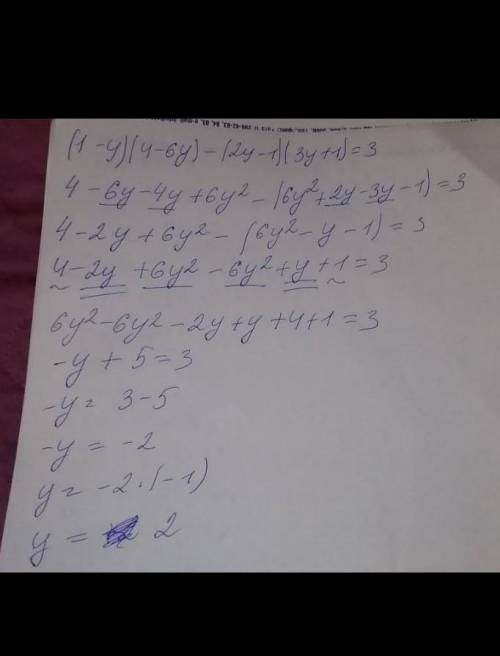 (1-y)(4-6y)-(2y-1)(3y+1)=3
4-6y-4y+6y²-(6y²+2y-3y-1)=3
4-2y+6y²-(6y²-y-1)=3
4-2y+6y²-6y²+y+1=3
6y²-6y²-2y+y+4+1=3
-y+5=3
-y=3-5
-y=-2
y=-2·(-1)
y=2